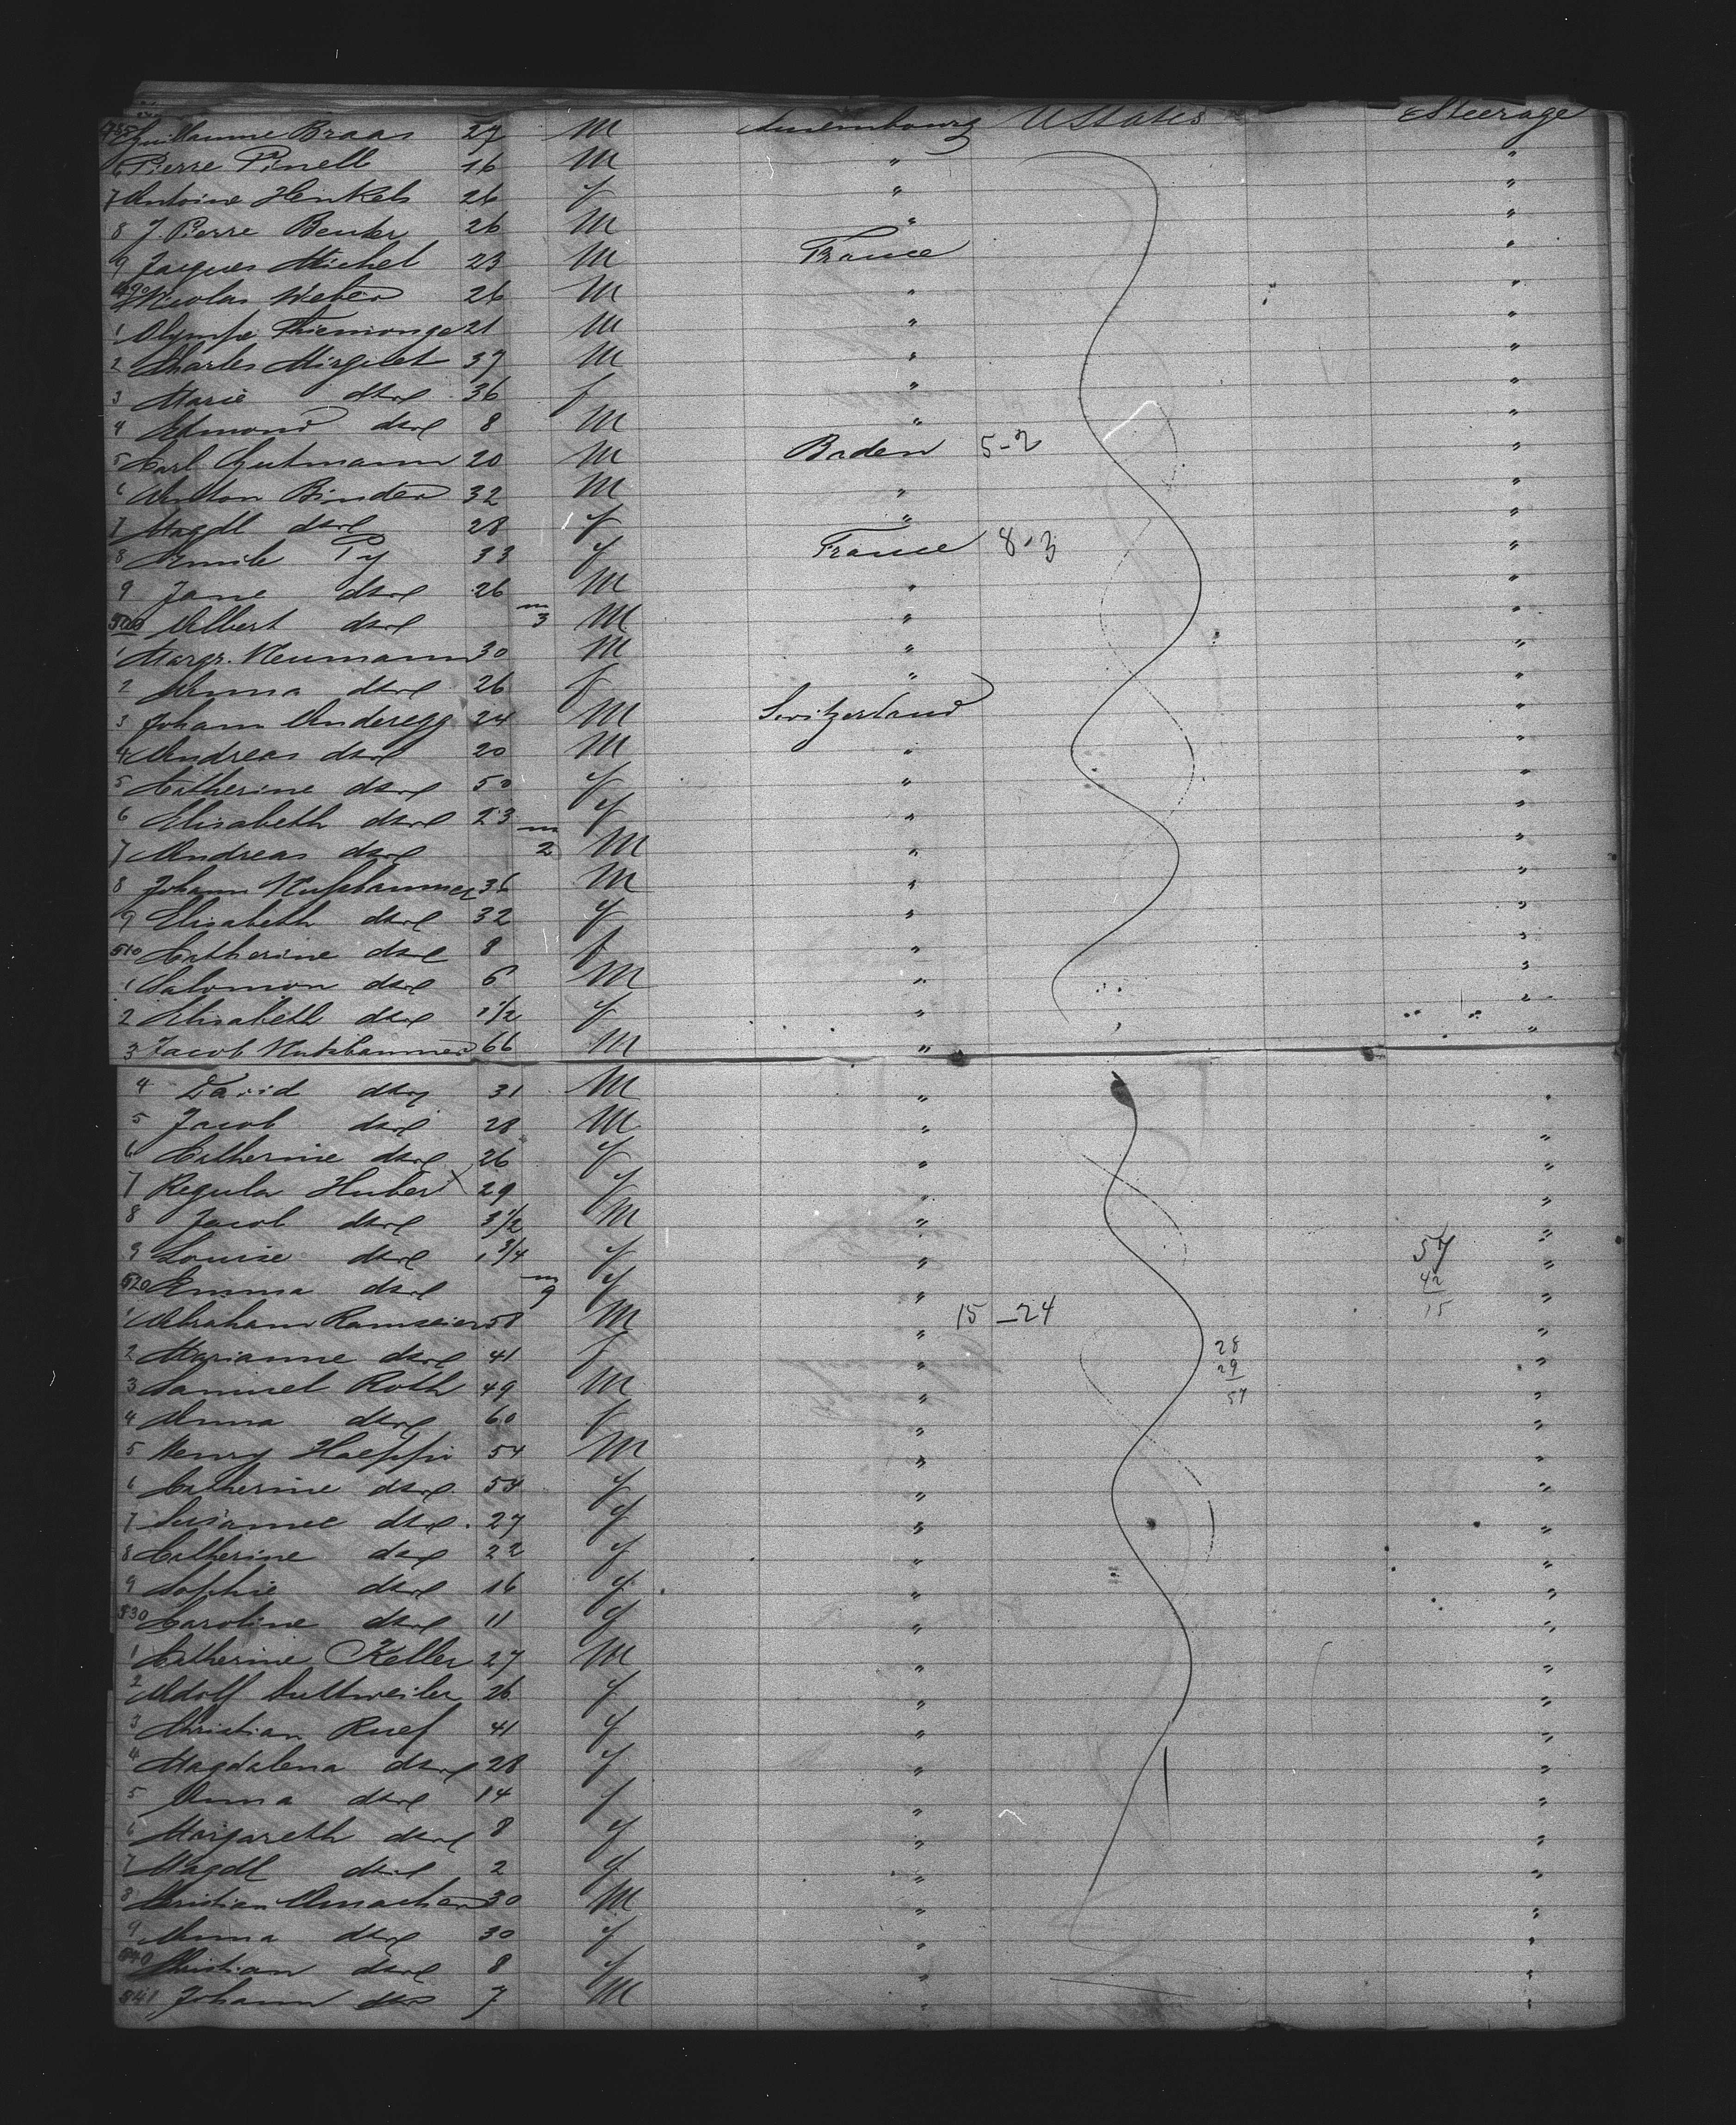 485 Guillaume Braas 27 M Luxembourg UStates Steerage
6 Pierre Pinell 16 M " "
7 Antoine Henkels 26 f " "
8 J. Pierre Benker 26 M " "
9 Jacques Michel 23 M France "
490 Nicolas Weber 26 M " "
1 Olympe 21 M " "
2 Charles Mirgulet 37 M " "
3 Marie dto 36 f " "
4 Edmond dto 8 M " "
5 Carl Gutmann 20 M Baden 5-2 "
6 Anton Binder 32 M " "
7 Magdl dto 28 f " "
8 Emile Py 33 f France 8-3 "
9 Jane dto 26 M " "
500 Albert dto m 3 M " "
1 Margr. Neumann 30 M " "
2 Anna dto 26 f " "
3 Johann Anderegg 24 M Switzerland "
4 Andreas dto 20 M " "
5 Catherine dto 50 f " "
6 Elisabeth dto 23 f " "
7 Andreas dto m 2 M " "
8 Johann Nussbaumer 36 M " "
9 Elisabeth dto 32 f " "
510 Catherine dto 8 f " "
1 Salomon dto 6 M " "
2 Elisabeth dto 1/2 f " "
3 Jacob Nutsbaumer 66 M " "
4 David dto 31 M " "
5 Jacob dto 28 M " "
6 Catherine dto 26 f " "
7 Regula Huber X 29 f " "
8 Jacob dto 3 1/2 M " "
9 Louise dto 1 3/4 f " 57 "
520 Emma dto m 9 f " 42 "
1 Abraham Ramseier 58 M " 15-24 15 "
2 Marianne dto 41 f " 28 "
3 Samuel Roth 49 M " 29 "
57
4 Anna dto 60 f " "
5 Henry Haeffri 54 M " "
6 Catherine dto 54 f " "
7 Susannee dto 27 f " "
8 Catherine dto 22 f " "
9 Sophie dto 16 f " "
530 Caroline dto 11 f " "
1 Catherine Keller 27 M " "
2 Adolf Duttweiler 26 f " "
3 Christian Ruef 41 f " "
4 Magdalena dto 28 f " "
5 Anna dto 14 f " "
6 Margareth dto 8 f " "
7 Magdl dto 2 f " "
8 Christian Amacher 30 M " "
9 Anna dto 30 f " "
540 Christian dto 8 f " "
541 Johann dto 7 M " "